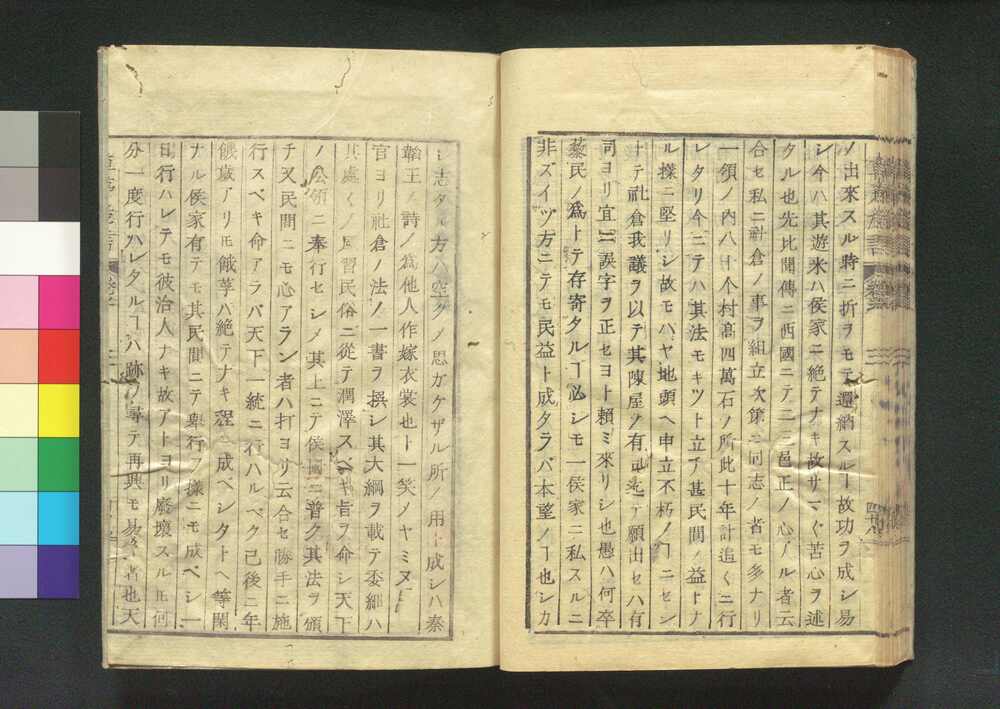 ノ出來スル時ニ折ヲモテ還納スルヿ故功ヲ成シ易
シ今ハ其遊米ハ侯家ニ絶テナキ故サマ〲苦心ヲ述
タル也先比聞傳ニ西國ニテ二三邑正ノ心アル者云
合セ私ニ社倉ノ事ヲ組立次第ニ同志ノ者モ多ナリ
一領ノ内八十个村髙四萬石ノ所此十年計追〱ニ行
レタリ今ニテハ其法モキツト立テ甚民間ノ益トナ
ル揲ニ堅リシ故モハヤ地頭ヘ申立不朽ノヿニセン
トテ社倉我議ヲ以テ其陳屋ノ有司迄テ願出セハ有
司ヨリ宜ニ誤字ヲ正セヨト頼ミ來リシ也愚ハ何卒
藜民ノ爲トテ存寄タルヿ必シモ一侯家ニ私スルニ
非ズイヅ方ニテモ民益ト成タラバ本望ノヿ也シカ
シ志タル方ハ空クノ思ガケザル所ノ用ト成シハ秦
韜王ノ詩ノ為他人作嫁衣裳也ト一笑ノヤミヌ
官ヨリ社倉ノ法ノ一書ヲ撰シ其大綱ヲ載テ委細ハ
其處〱ノ風習民俗ニ從テ潤澤スベキ旨ヲ命シ天下
ノ公領ニ奉行セシメ其上ニテ侯國ニ普ク其法ヲ頒
チ又民間ニモ心アラン者ハ打ヨリ云合セ勝手ニ施
行スベキ命アラバ天下一統ニ行ハルベク已後ニ年
饑歳アリ𪜈餓莩ハ絶テナキ程ニ成ベシタトヘ等閑
ナル侯家有テモ其民間ニテ擧行フ様ニモ成ベシ一
旦行ハレテモ彼治人ナキ故アトヨリ廢壞スル𪜈何
分一度行ハレタルヿハ跡ヲ尋テ再興モ易キ者也天